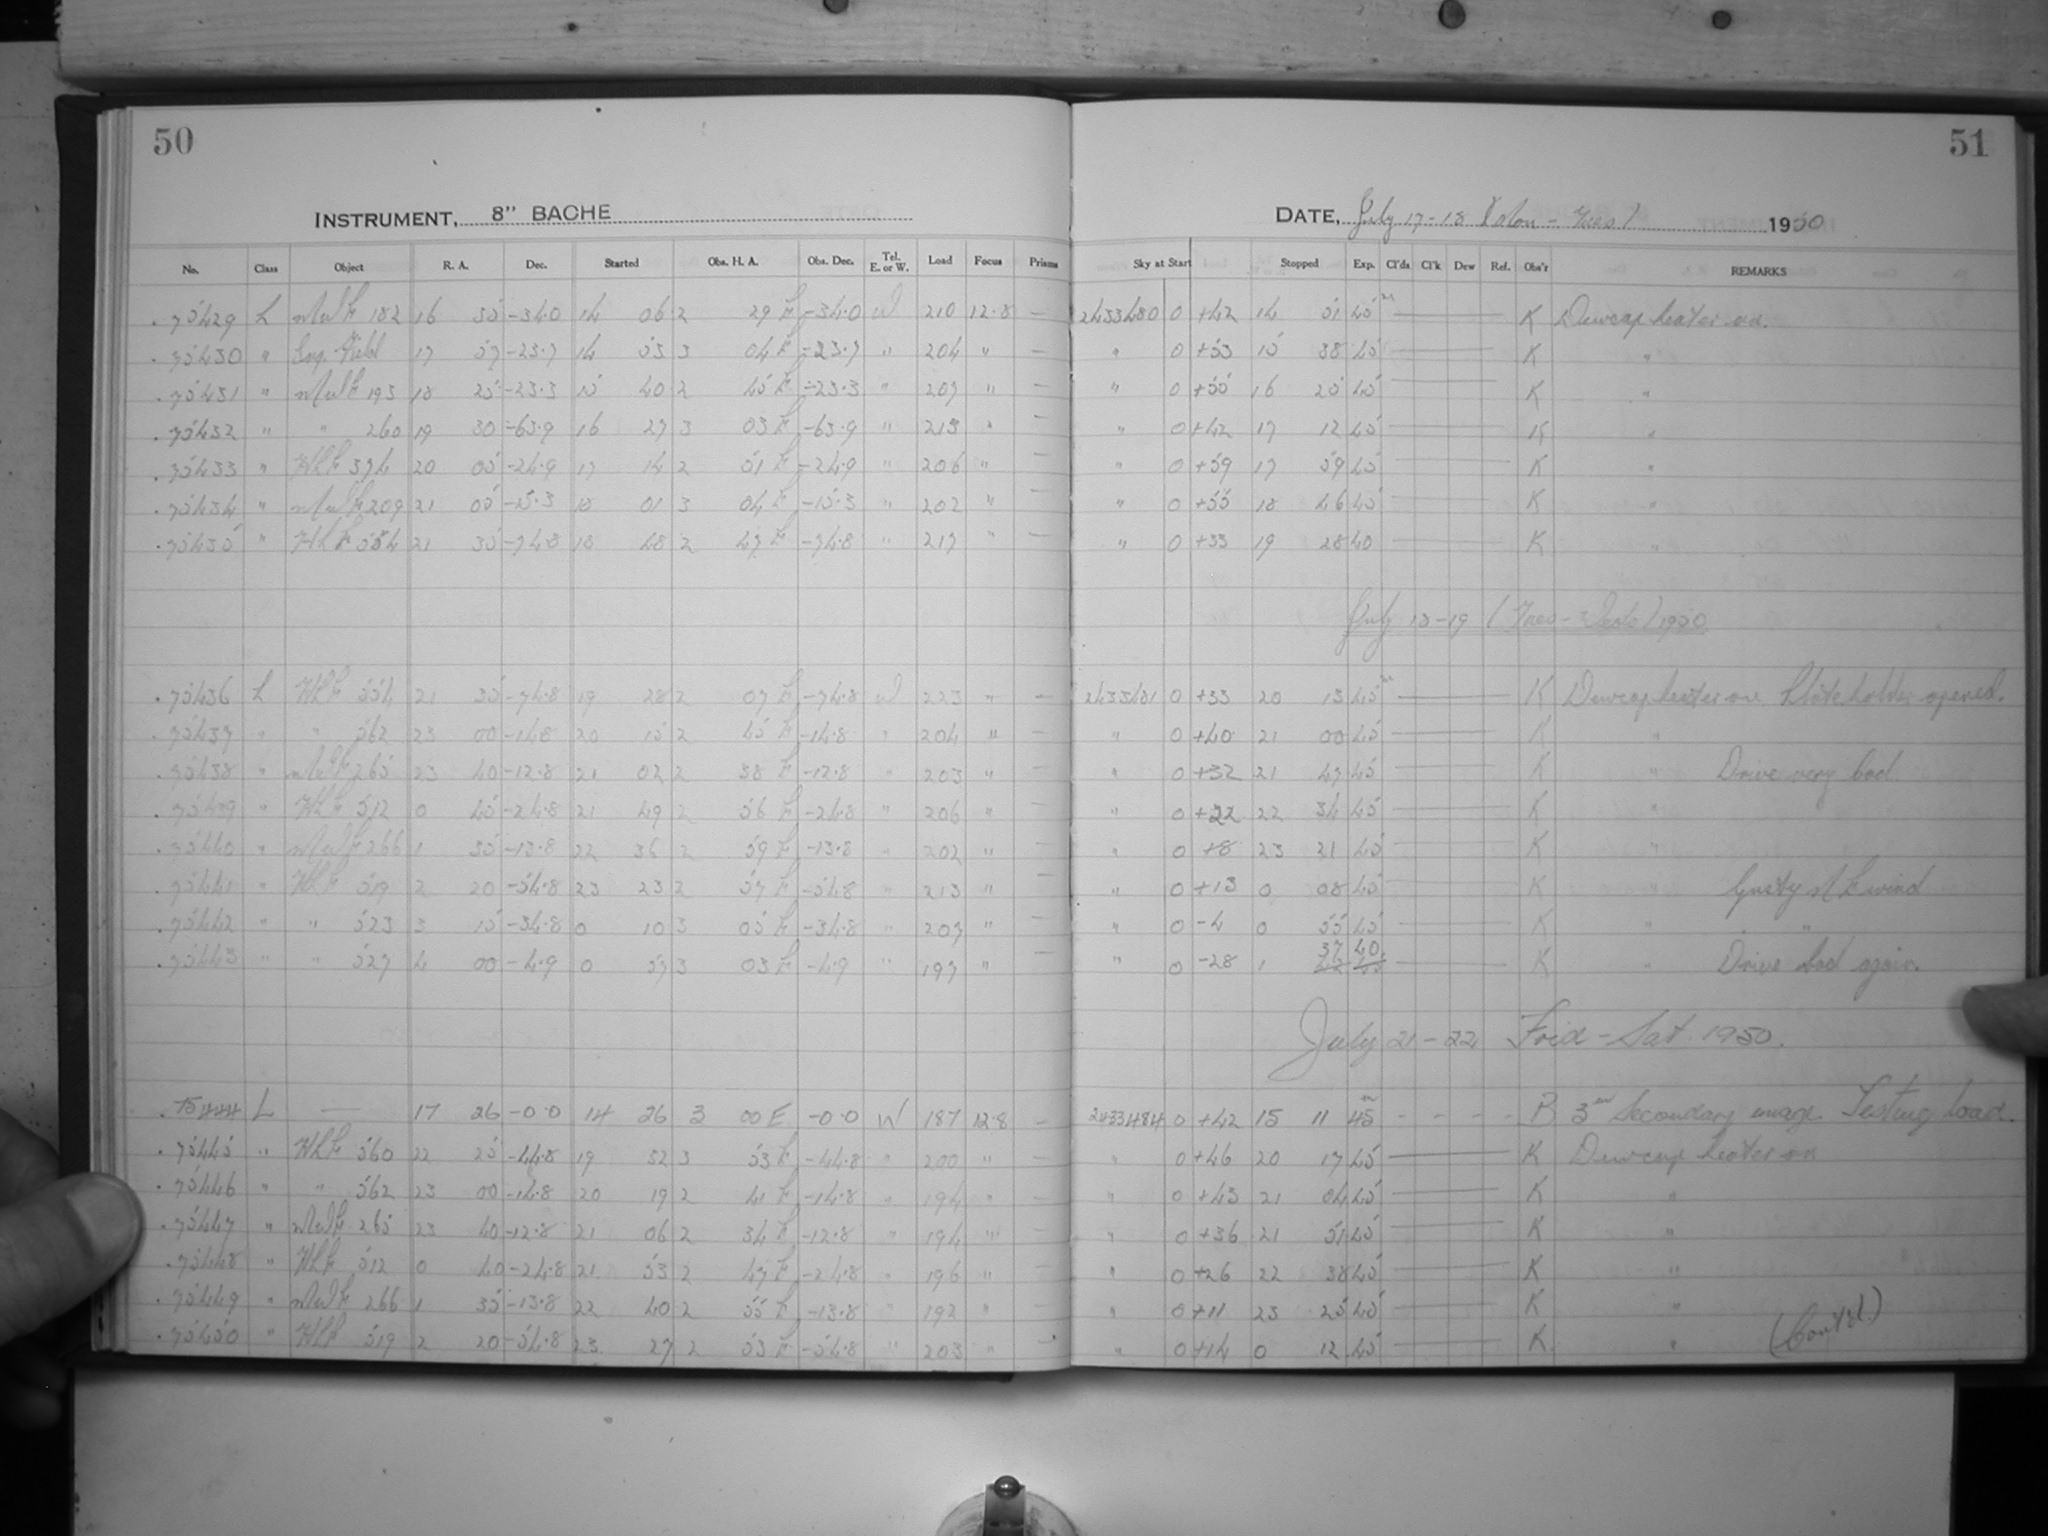 50
51
INSTRUMENT, 8" BACHE
DATE, July 17-18 (Mon - Tues) 1950
No. Class Object R. A. Dec. Started Obs. H. A. Obs. Dec. Tel. E. or W. Load Focus Prisms Sky at Start Stopped Exp. Cl'ds Cl'k Dew Ref. Obs'r REMARKS
75429 L MWF 182 16 35 -34.0 14 06 2 29 E -34.0 W 210 12.8 — 2433480 0 +42 14 51 45m — K Dewcap heater on.
75430 " 17 57 -23.7 14 53 3 04 E -23.7 " 204 " — " 0 +53 15 38 45 — K "
75431 " MWF 193 18 25 -23.3 15 40 2 45 E -23.3 " 207 " — " 0 +55 16 25 45 — K "
75432 " " 260 19 30 -63.9 16 27 3 03 E -63.9 " 215 " — " 0 +42 17 12 45 — K "
75433 " HLF 574 20 05 -24.9 17 14 2 51 E -24.9 " 206 " — " 0 +59 17 59 45 — K "
75434 " MWF 209 21 05 -15.3 18 01 3 04 E -15.3 " 202 " — " 0 +55 18 46 45 — K "
75435 " HLF 554 21 35 -74.8 18 48 2 47 E -74.8 " 217 " — " 0 +33 19 28 40 — K "
July 18-19 (Tues - Weds) 1950
75436 L HLF 554 21 35 -74.8 19 28 2 07 E -74.8 W 223 " — 2433481 0 +33 20 13 45m — K Dewcap heater on. Plateholder opened.
75437 " " 562 23 00 -14.8 20 15 2 45 E -14.8 " 204 " — " 0 +40 21 00 45 — K "
75438 " MWF 265 23 40 -12.8 21 02 2 38 E -12.8 " 203 " — " 0 +32 21 47 45 — K " Drive very bad.
75439 " HLF 512 0 45 -24.8 21 49 2 56 E -24.8 " 206 " — " 0 +22 22 34 45 — K "
75440 " MWF 266 1 35 -13.8 22 36 2 59 E -13.8 " 202 " — " 0 +8 23 21 45 — K "
75441 " HLF 519 2 20 -54.8 23 23 2 57 E -54.8 " 213 " — " 0 +13 0 08 45 — K " Gusty N E wind
75442 " " 523 3 15 -34.8 0 10 3 05 E -34.8 " 207 " — " 0 -4 0 55 45 — K " "
75443 " " 527 4 00 -4.9 0 57 3 03 E -4.9 " 197 " — " 0 -28 1 37 40 — K " Drive bad again.
July 21-22 Frid - Sat. 1950.
75444 L — 17 26 -0.0 14 26 3 00 E -0.0 W 187 12.8 — 2433484 0 +42 15 11 45m - - - - B 3rd Secondary image. Testing load.
75445 " HLF 560 22 25 -44.8 19 32 3 53 E -44.8 " 200 " — " 0 +46 20 17 45 — K Dewcap heater on
75446 " " 562 23 00 -14.8 20 19 2 41 E -14.8 " 194 " — " 0 +43 21 04 45 — K "
75447 " MWF 265 23 40 -12.8 21 06 2 34 E -12.8 " 194 " — " 0 +36 21 51 45 — K "
75448 " HLF 512 0 40 -24.8 21 53 2 47 E -24.8 " 196 " — " 0 +26 22 38 45 — K "
75449 " MWF 266 1 35 -13.8 22 40 2 55 E -13.8 " 192 " — " 0 +11 23 25 45 — K "
75450 " HLF 519 2 20 -54.8 23 27 2 53 E -54.8 " 203 " — " 0 +14 0 12 45 — K "
(Cont'd.)